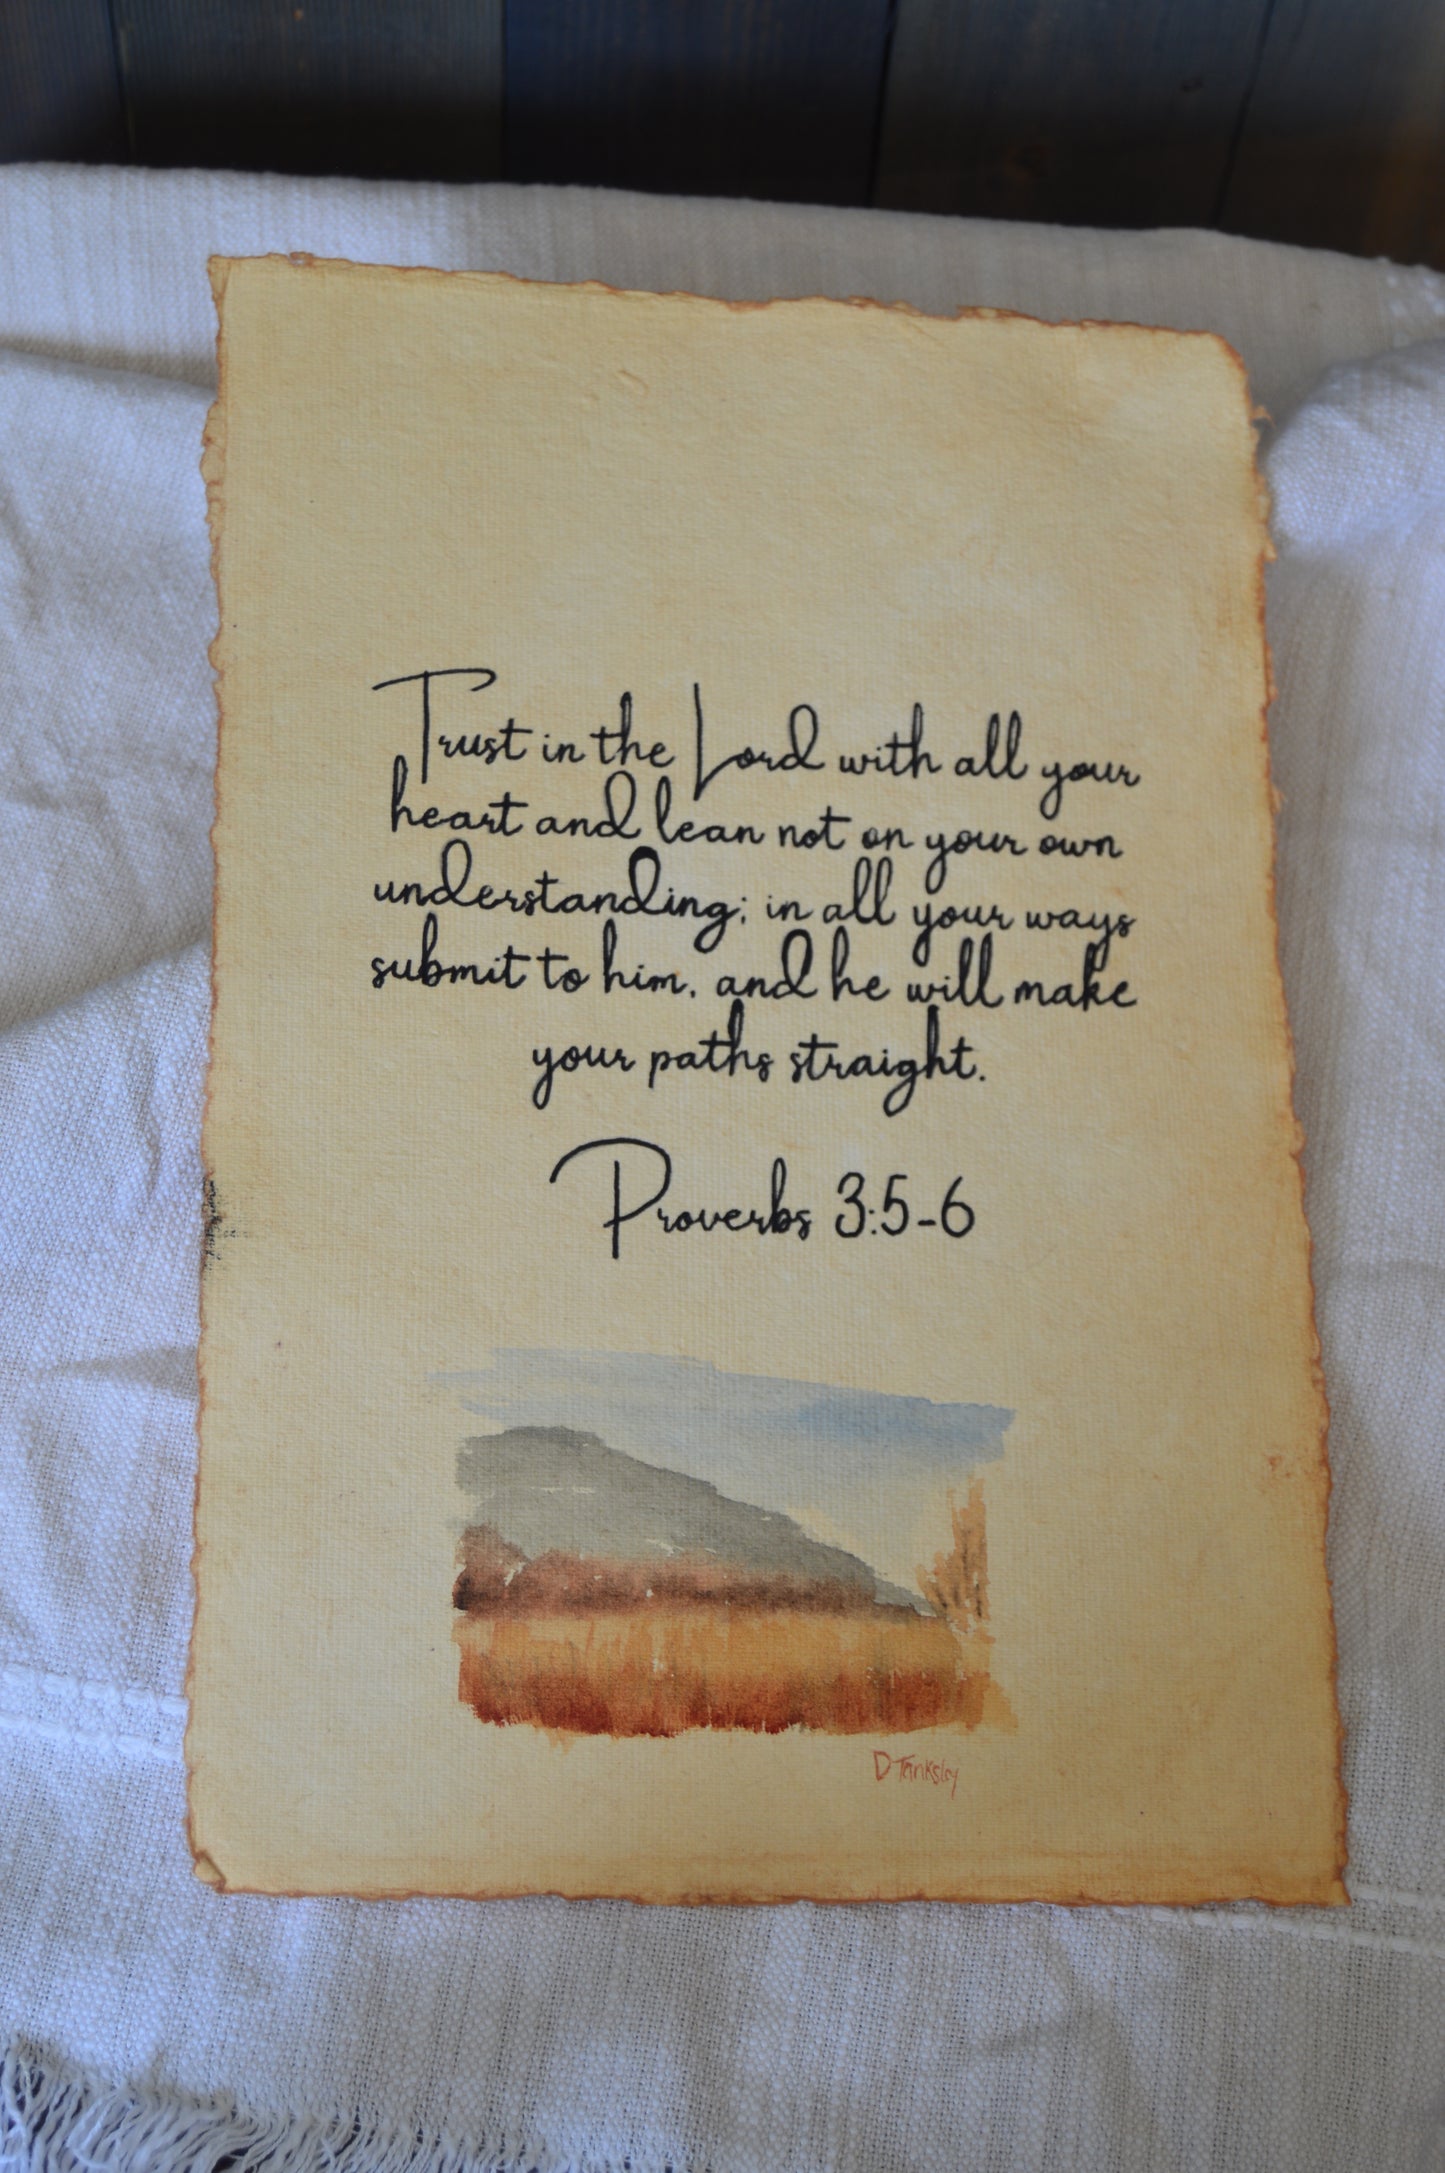 Trust in the Lord with all your
heart and lean not on your own
understanding; in all your ways
submit to him, and he will make
your paths straight.
Proverbs 3:5-6
D Tanksley